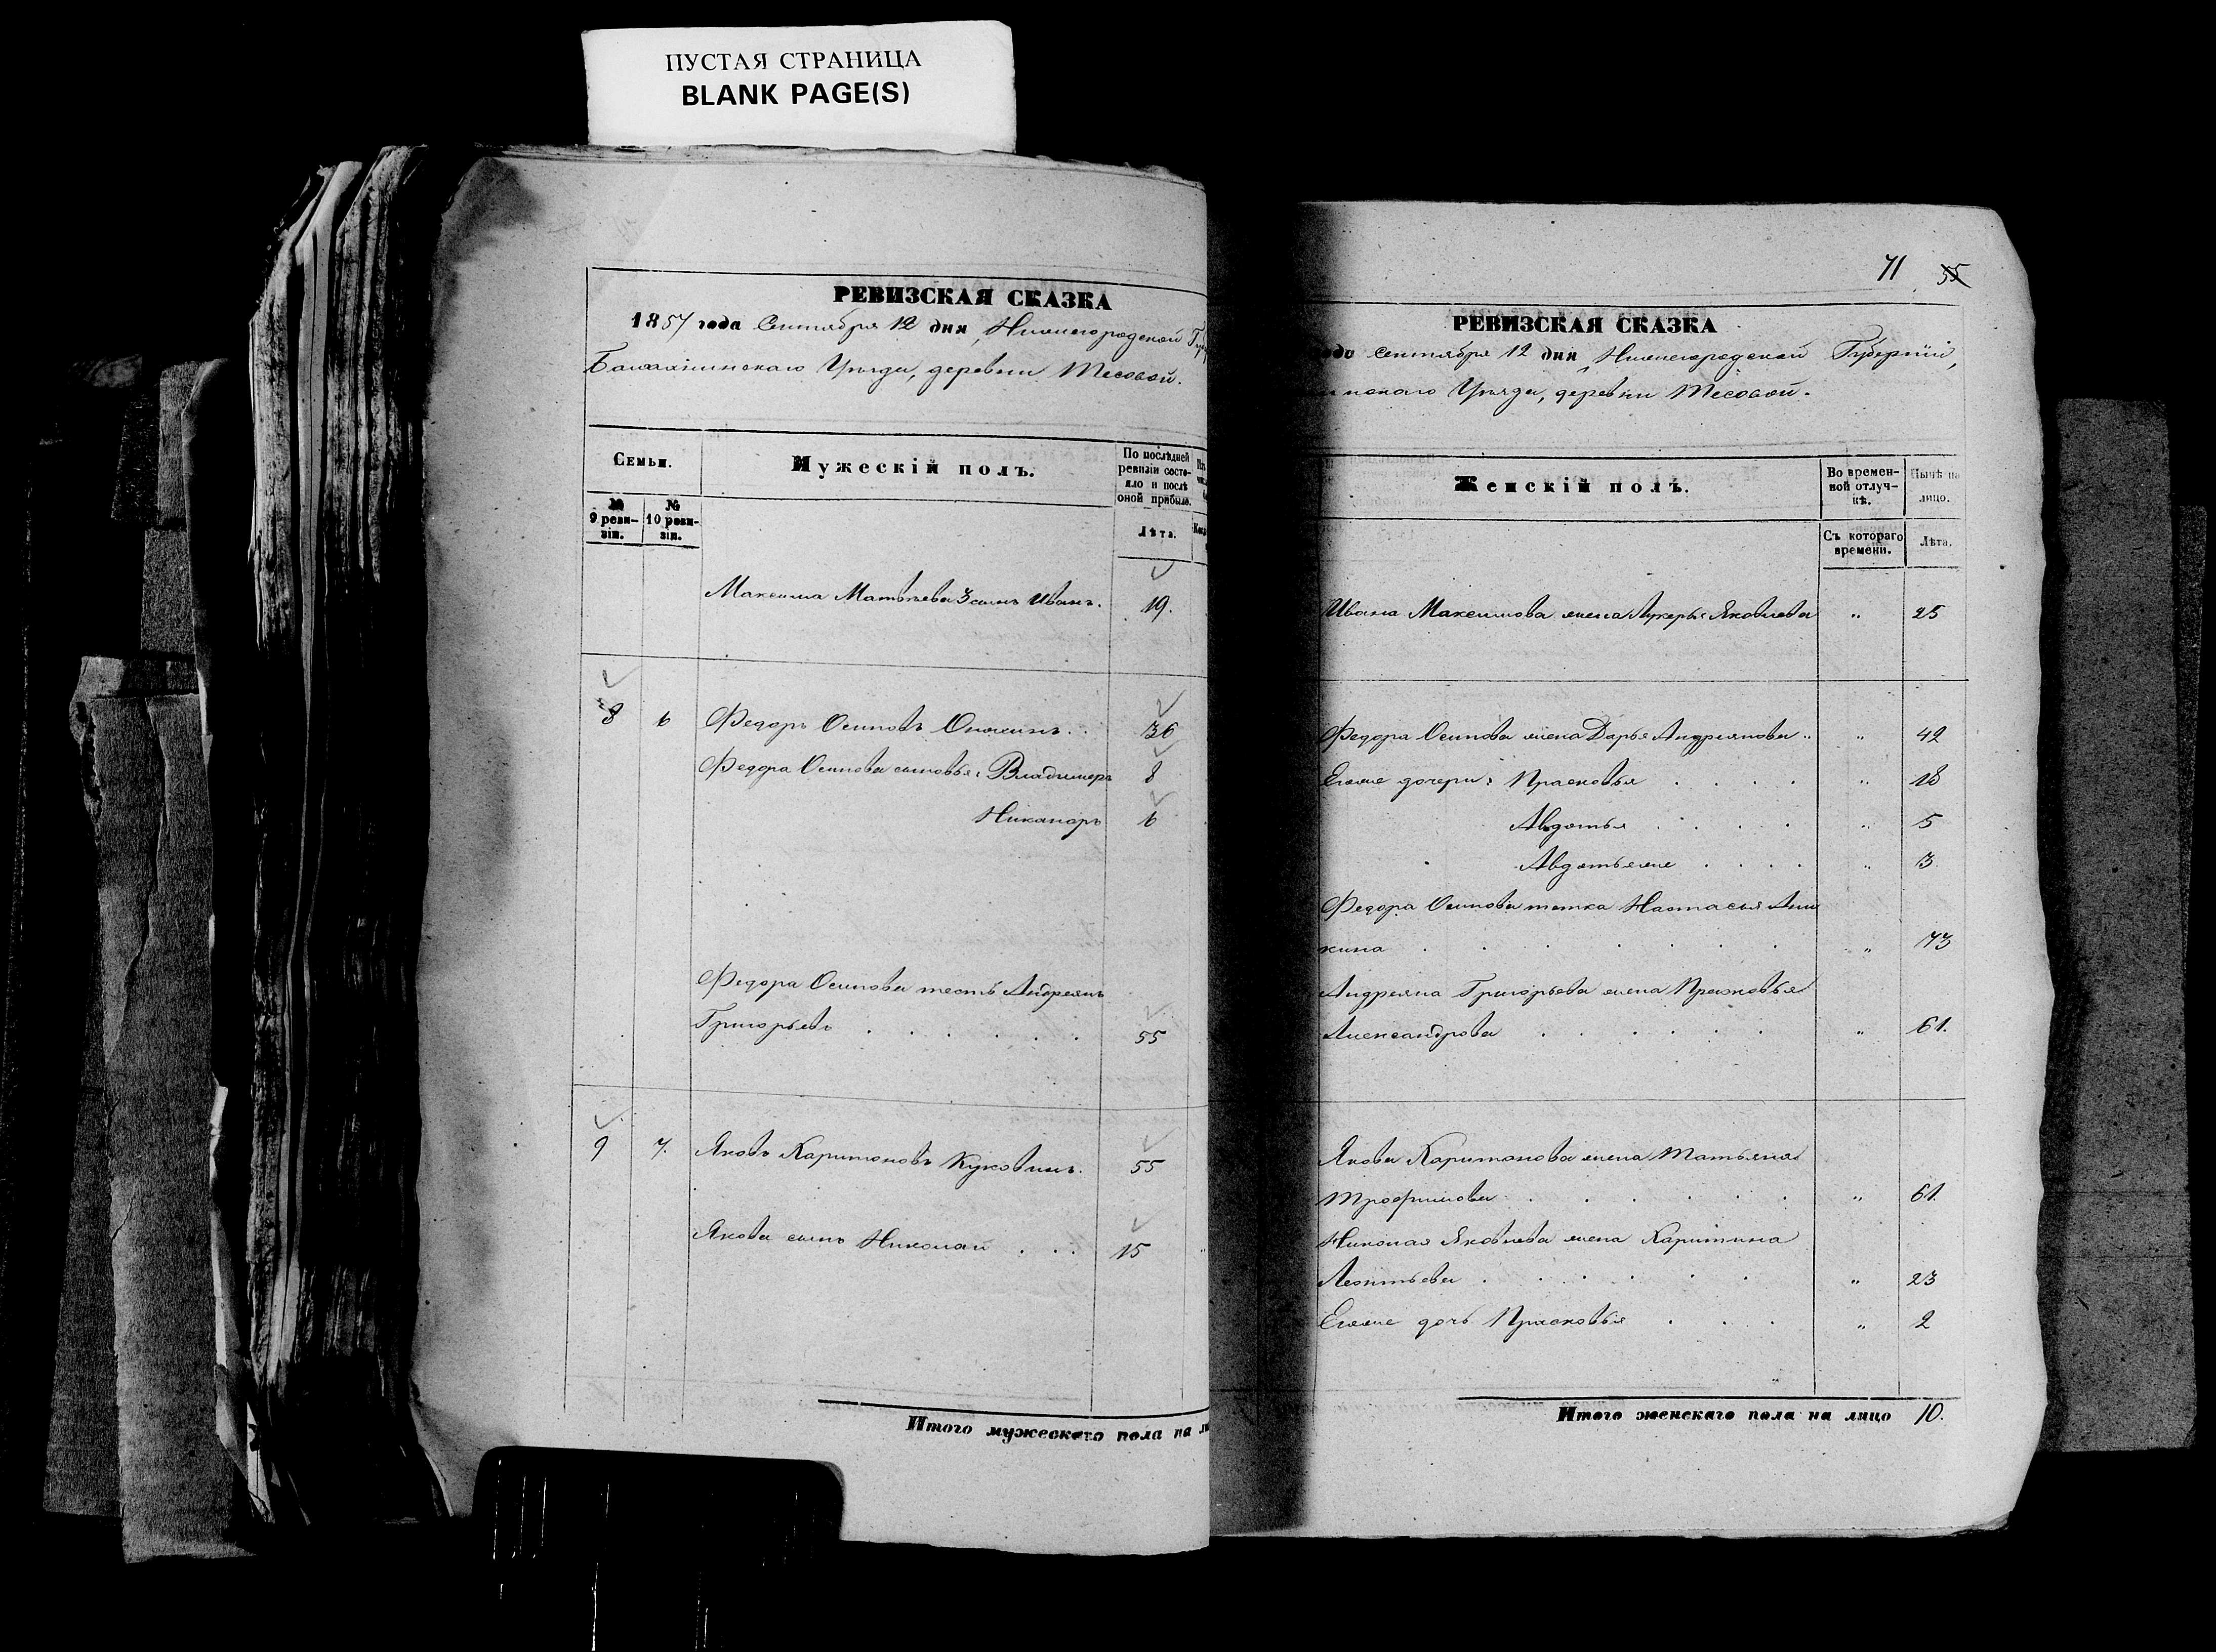 ПУСТАЯ СТРАНИЦА
BLANK PAGE(S)
РЕВИЗСКАЯ СКАЗКА
1857 года Сентября 12 дня, Нижегородской
Балахнинскаго Уѣзда, деревни Тесовой.
Семьи.
Мужескій полъ.
По послѣдней ревизіи состояло и послѣ оной прибыло.
№ 9 ревизіи.
№ 10 ревизіи.
Лѣта.
Максима Матвѣева 3 сынъ Иванъ. 19.
8 6 Федоръ Осиповъ 36
Федора Осипова сыновья: Владимеръ 8
Никаноръ 6
Федора Осипова тесть Андреянъ
Григорьевъ 55
9 7. Яковъ Харитоновъ Куковинъ. 55
Якова сынъ Николай 15
Итого мужескаго пола на
71 55
РЕВИЗСКАЯ СКАЗКА
Сентября 12 дня, Нижегородской Губерніи,
Уѣзда, деревни Тесовой.
Женскій полъ.
Во временной отлучкѣ.
Нынѣ на лицо.
Съ котораго времени.
Лѣта.
Ивана Максимова жена Лукерья Яковлева " 25
Федора Осипова жена Дарья Андреянова " 42
Егоже дочери: Прасковья " 18
Авдотья " 5
Авдотьяже " 3
Федора Осипова тетка Настасья Ани
кина " 73
Андреяна Григорьева жена Прасковья
Александрова " 61.
Якова Харитонова жена Татьяна
Трофимова " 61.
Николая Яковлева жена Харитина
Леонтьева " 23
Егоже дочь Прасковья " 2
Итого женскаго пола на лицо 10.